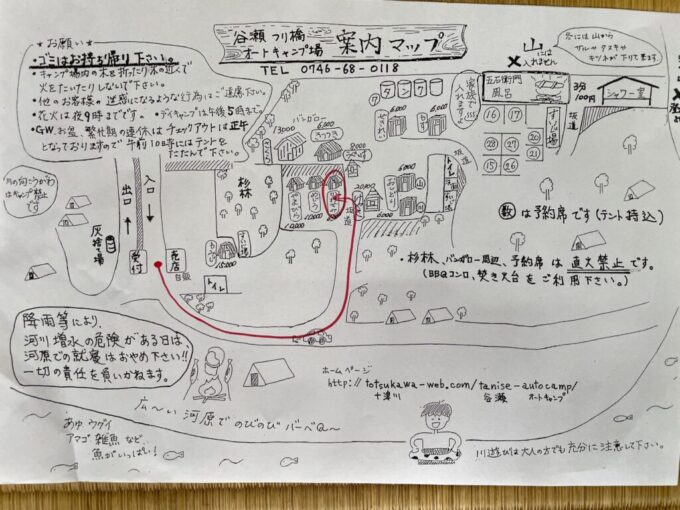 谷瀬つり橋
オートキャンプ場
案内マップ
TEL 0746-68-0118
☆お願い☆
・ゴミはお持ち帰り下さい。
・キャンプ場内の木を折ったり木の近くで
火をたいたりしないで下さい。
・他のお客様の迷惑になるような行為はご遠慮下さい。
・花火は夜9時までです。・デイキャンプは午後5時まで。
・GW、お盆、繁忙期の連休はチェックアウトは正午
となっておりますので午前10時にはテントを
たたんで下さい。
山には
入れません
冬には山から
サルやタヌキや
キツネが下りて来ます。
家族で
入れますよ
五右衛門
風呂
3分
100円
シャワー室
タンク
バンガロー
13000
6,000
6,000
6,000
10,000
10,000
20,000
15,000
17
16
すいじ場
坂道
坂道
トイレ
杉林
川の向こうがわ
はキャンプ禁止
です
出口
入口
灰捨て場
受付
売店
自販
トイレ
数は予約席です(テント持込)
・杉林、バンガロー周辺、予約席は直火禁止です。
(BBQコンロ、焚き火台をご利用下さい。)
降雨等により、
河川増水の危険がある日は、
河原での就寝はおやめ下さい!!
一切の責任を負いかねます。
ホームページ
http://totsukawa-web.com/tanise-autocamp/
十津川
谷瀬
オートキャンプ
広〜い河原でのびのびバーベQ〜
あゆ ウグイ
アマゴ 雑魚など
魚がいっぱい!
川遊びは大人の方でも充分に注意して下さい。